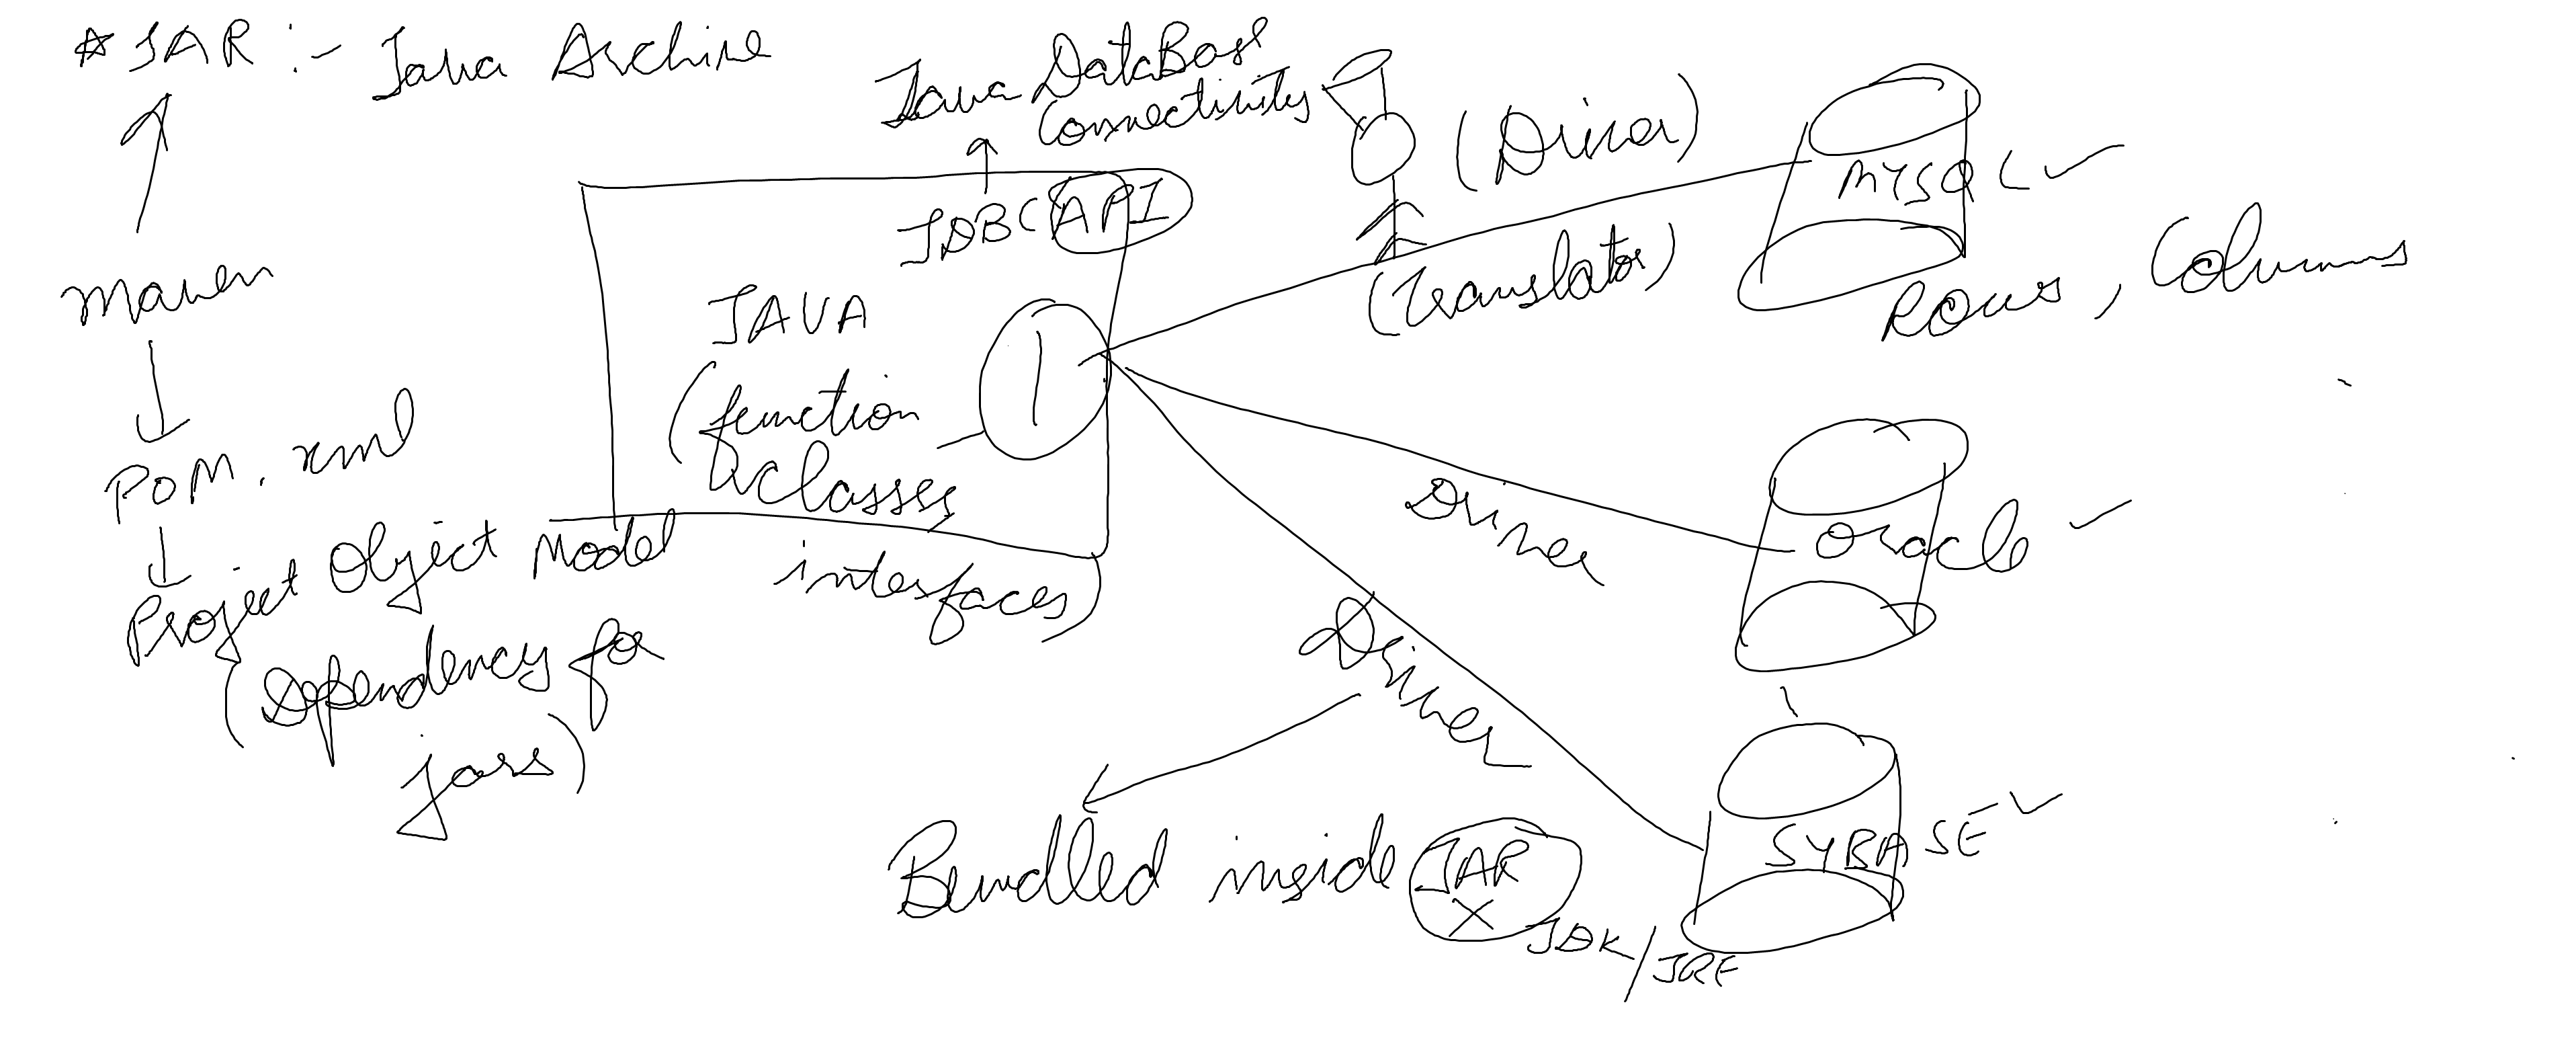 * JAR :- Java Archive
Maven
POM. xml
Project Object Model
(Dependency for
jars)
Java DataBase
Connectivity
JDBC API
JAVA
(function
classes
interfaces)
(Driver)
(Translator)
MYSQL
Rows, Columns
Driver
Oracle
Driver
SYBASE
Bundled inside JAR
X
JDK/JRE